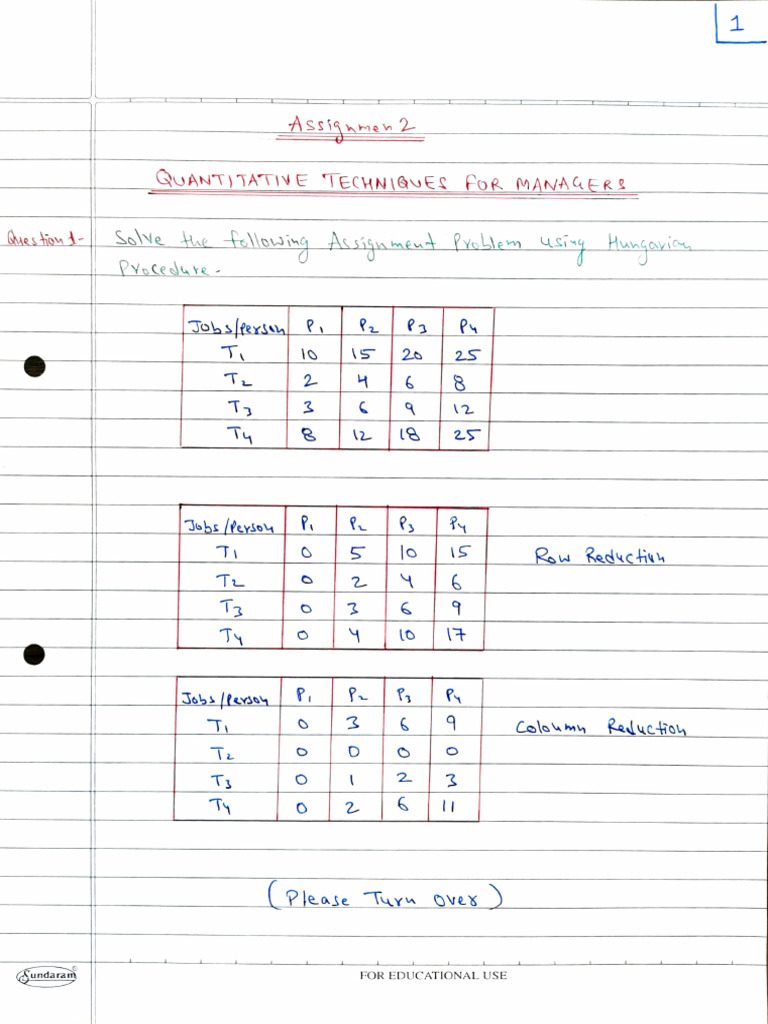 1
Assignmen 2
QUANTITATIVE TECHNIQUES FOR MANAGERS
Question 1- Solve the following Assignment Problem using Hungarian
Procedure.
Jobs/person P1 P2 P3 P4
T1 10 15 20 25
T2 2 4 6 8
T3 3 6 9 12
T4 8 12 18 25
Jobs/Person P1 P2 P3 P4
T1 0 5 10 15 Row Reduction
T2 0 2 4 6
T3 0 3 6 9
T4 0 4 10 17
Jobs/Person P1 P2 P3 P4
T1 0 3 6 9 Coloumn Reduction
T2 0 0 0 0
T3 0 1 2 3
T4 0 2 6 11
(Please Turn over)
Sundaram
FOR EDUCATIONAL USE